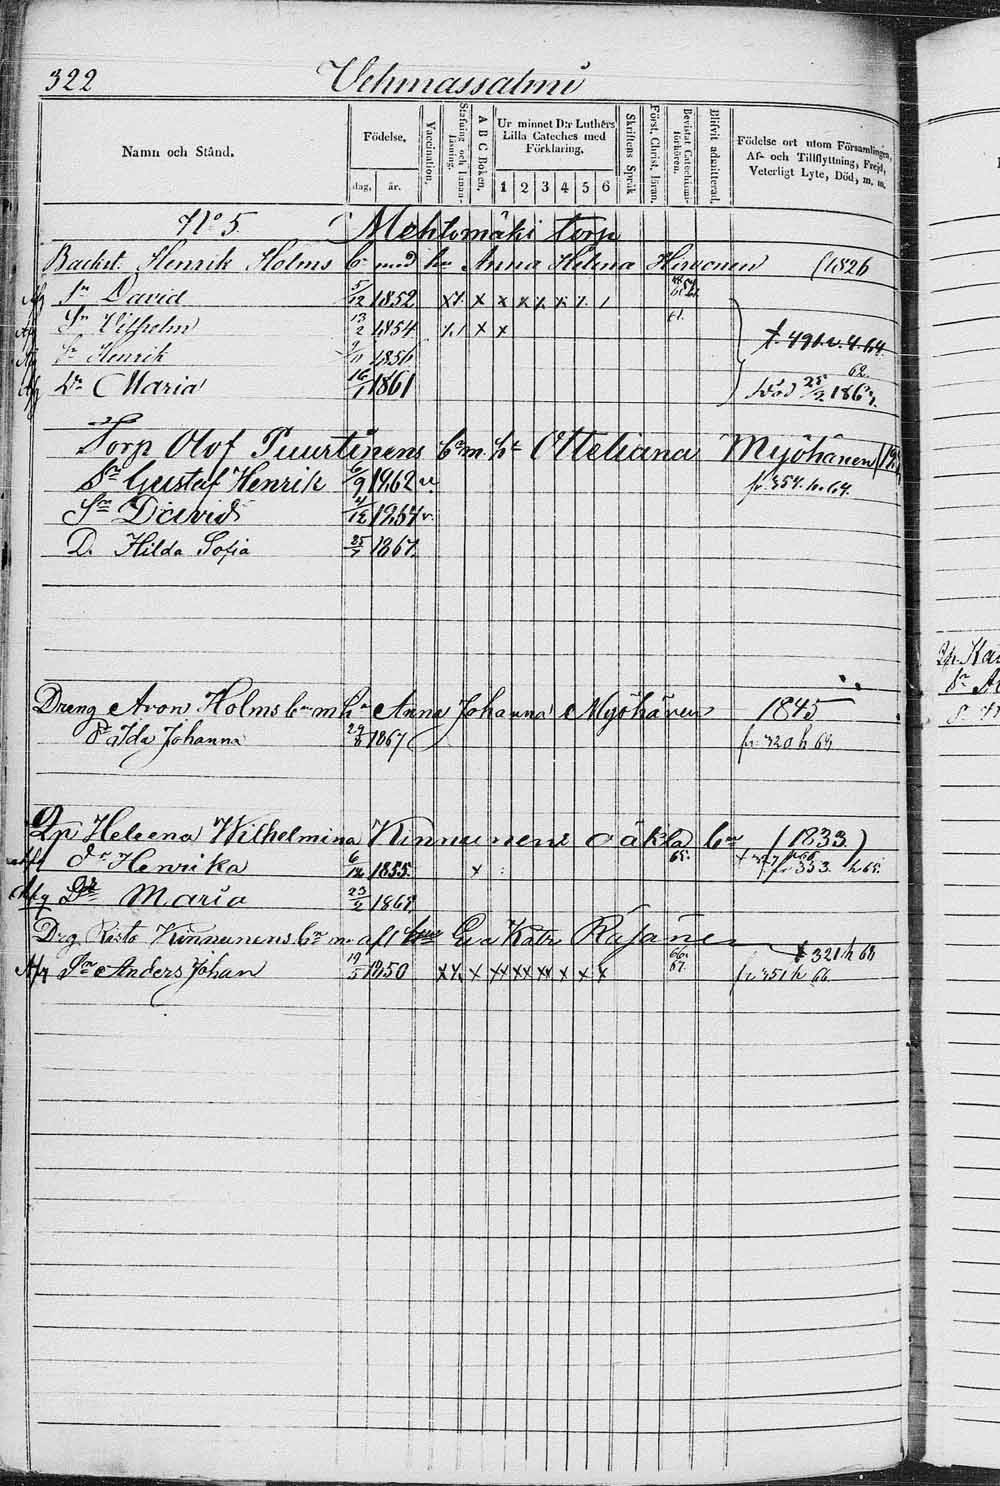 322 Vehmassalmi
Namn och Stånd. Födelse. dag. år. Vaccination. Stafning och Innanläsning. A B C Boken. Ur minnet D:r Luthérs Lilla Cateches med Förklaring. 1 2 3 4 5 6 Skriftens Språk Först. Christ. läran. Bevistat Catechismiförhören. Blifvit admitterad. Födelse ort utom Församlingen, Af- och Tillflyttning, Frejd, Veterligt Lyte, Död, m. m.
No 5 Mehtomäki torp
Backst. Henrik Holms bn med hu Anna Helena Hirvonen (1826
Afg Sn David 5/12 1852 x x x x x x
Afg Sn Vilhelm 13/2 1854 x x
Afg Sn Henrik 1856 t. 491. v. 4. 64.
Afg Dr Maria 16/1 1861 död 25/2 1863.
Torp Olof Puurtinens bn m. ht Otteliana Myöhänen
Sn Gustaf Henrik 6/9 1862 v. fr. 354. h. 64.
Sn David /12 1864 v.
D. Hilda Sofia 25/7 1867.
Dreng Aron Holms bn m hn Anna Johanna Myöhänen 1845
dr Ida Johanna 1867 fr. 320 h 68
Qp Heleena Wilhelmina Kinnunens oäkta bn (1833)
dr Henrika 6/12 1855. x 65. fr 353. h 65.
Afg Dr Maria 23/2 1869.
Drg Risto Kinnunens bn m afl hus Eva Katr Räsänen
Afg Sn Anders Johan 19/5 1850 x x x x x x x x x x 66. 67. t 321 h 68 fr 351 h 66.